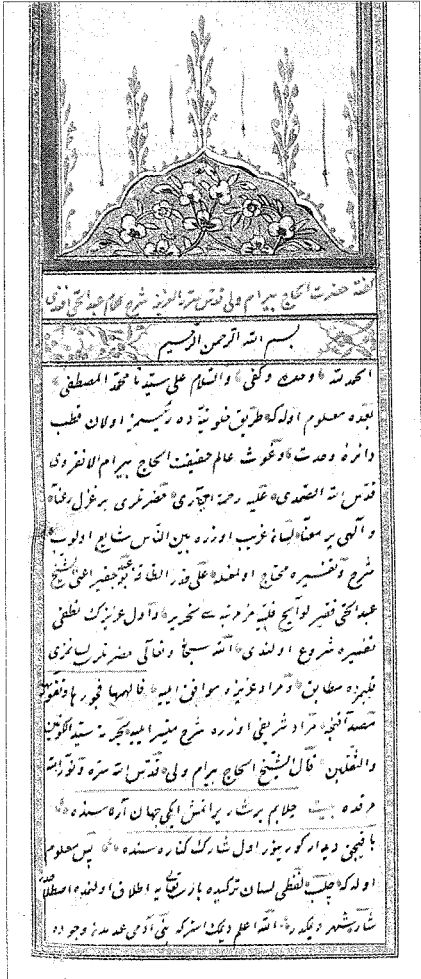 گفتهٔ حضرت الحاج بیرام ولی قدس سره العزیز شرح کلام عبد الحی افندی
بسم الله الرحمن الرحیم
الحمد لله وحده وکفی والسلام علی سیدنا محمد المصطفی
بعده معلوم اوله که طریق خلوتیه ده رئیسمز اولان قطب
دائرهٔ وحدت وغوث عالم حقیقت الحاج بیرام الانقروی
قدس الله الصمدی علیه رحمة الباری حضرتلری بر غزل رعنا
والهی پر معنا لسان غریب اوزره بین الناس شایع اولوب
شرح وتفسیره محتاج اولمغله علی قدر الطاقة بو حقیر اعنی الشیخ
عبد الحی فقیر لوایح قلبیه مز مرتبه سی تحریر واول عزیزک نطقی
تفسیره شروع اولندی الله سبحانه وتعالی حضرتلری لسانمزی
قلبمزه مطابق ومراد عزیزه موافق ایلیه فالهمها فجورها وتقویها
مراد شریفی اوزره شرح میسر ایلیه بحرمة سید الکونین
والثقلین قال الشیخ الحاج بیرام ولی قدس الله سره ونور الله
مرقده بیت چلبم بر شار یراتمش ایکی جهان آره سنده
باقیجق دیدار کورینور اول شارک کناره سنده پس معلوم
اوله که چلب لفظی لسان ترکیده باری تعالی یه اطلاق اولنده اصطلاحدر
شار شهر دیمکدر الله اعلم دیمک استر که بنی آدمی عدمدن وجوده